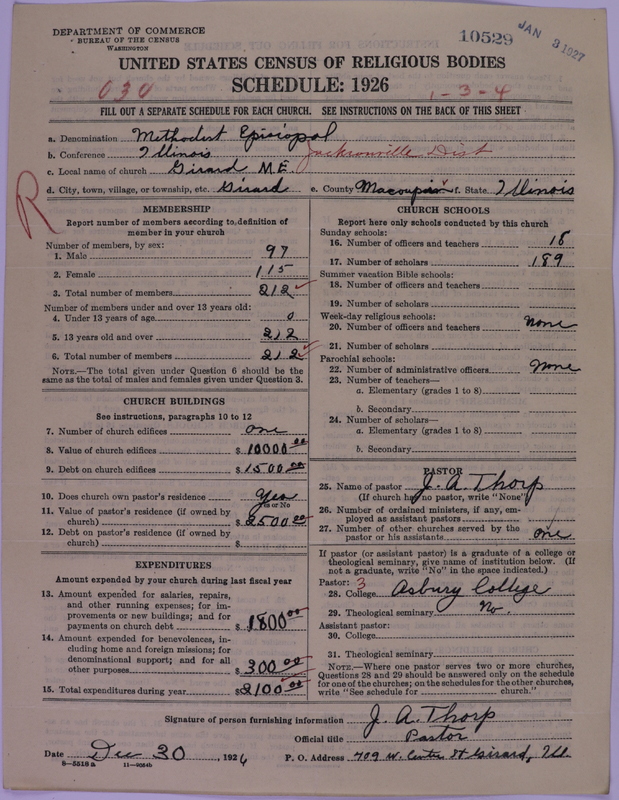 DEPARTMENT OF COMMERCE
BUREAU OF THE CENSUS
WASHINGTON
10529
JAN 3 1927
UNITED STATES CENSUS OF RELIGIOUS BODIES
SCHEDULE: 1926
030
1-3-4
FILL OUT A SEPARATE SCHEDULE FOR EACH CHURCH. SEE INSTRUCTIONS ON THE BACK OF THIS SHEET
a. Denomination Methodist Episcopal
b. Conference Illinois Jacksonville Dist
c. Local name of church Girard M.E.
d. City, town, village, or township, etc. Girard e. County Macoupin f. State Illinois
R
MEMBERSHIP
Report number of members according to definition of
member in your church
Number of members, by sex:
1. Male 97
2. Female 115
3. Total number of members 212
Number of members under and over 13 years old:
4. Under 13 years of age 0
5. 13 years old and over 212
6. Total number of members 212
NOTE.—The total given under Question 6 should be
same as the total of males and females given under Question 3.
CHURCH BUILDINGS
See instructions, paragraphs 10 to 12
7. Number of church edifices one
8. Value of church edifices $ 10000.00
9. Debt on church edifices $ 1500.00
10. Does church own pastor's residence Yes
Yes or No
11. Value of pastor's residence (if owned by
church) $ 2500.00
12. Debt on pastor's residence (if owned by
church) $
EXPENDITURES
Amount expended by your church during last fiscal year
13. Amount expended for salaries, repairs,
and other running expenses; for im-
provements or new buildings; and for
payments on church debt $ 1800.00
14. Amount expended for benevolences, in-
cluding home and foreign missions; for
denominational support; and for all
other purposes $ 300.00
15. Total expenditures during year $ 2100.00
CHURCH SCHOOLS
Report here only schools conducted by this church
Sunday schools:
16. Number of officers and teachers 18
17. Number of scholars 189
Summer vacation Bible schools:
18. Number of officers and teachers
19. Number of scholars
Week-day religious schools:
20. Number of officers and teachers none
21. Number of scholars
Parochial schools:
22. Number of administrative officers None
23. Number of teachers—
a. Elementary (grades 1 to 8)
b. Secondary
24. Number of scholars—
a. Elementary (grades 1 to 8)
b. Secondary
PASTOR
25. Name of pastor J. A. Thorp
(If church has no pastor, write "None")
26. Number of ordained ministers, if any, em-
ployed as assistant pastors
27. Number of other churches served by the
pastor or his assistants one
If pastor (or assistant pastor) is a graduate of a college or
theological seminary, give name of institution below. (If
not a graduate, write "No" in the space indicated.)
Pastor: 3
28. College Asbury College
29. Theological seminary No.
Assistant pastor:
30. College
31. Theological seminary
NOTE.—Where one pastor serves two or more churches,
Questions 28 and 29 should be answered only on the schedule
for one of the churches; on the schedules for the other churches,
write "See schedule for church."
Signature of person furnishing information J. A. Thorp
Official title Pastor
Date Dec 30, 1926 P. O. Address 709 W. Center St Girard, Ill.
8-5516a 11-9054b